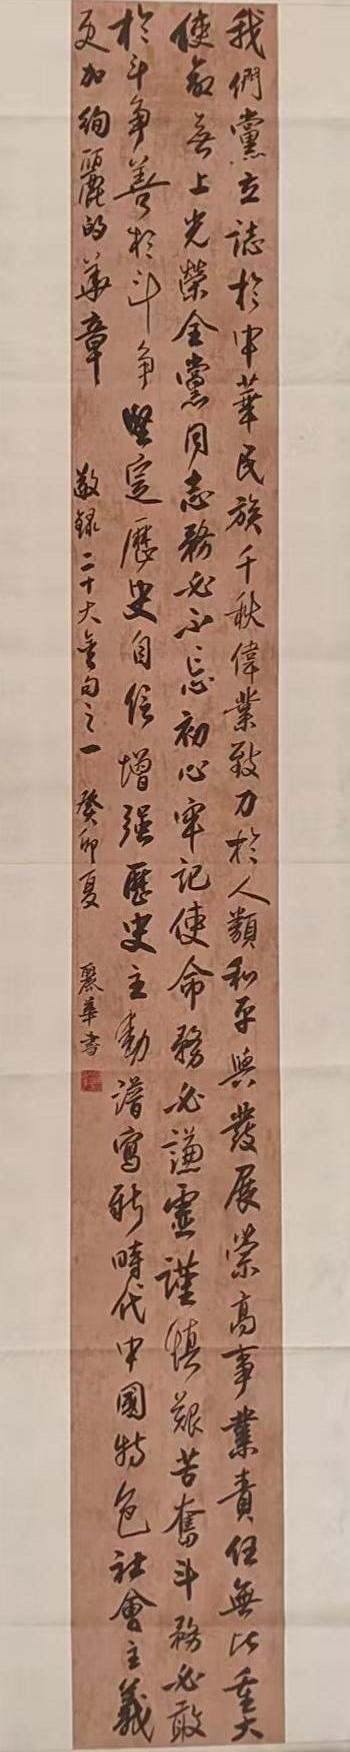 我們黨立誌於中華民族千秋偉業致力於人類和平與發展崇高事業責任無比重大
使命無上光榮全黨同志務必不忘初心牢記使命務必謙虛謹慎艱苦奮斗務必敢
於斗争善於斗争堅定歷史自信增强歷史主動譜寫新時代中國特色社會主義
更加絢麗的華章
敬録二十大金句之一 癸卯夏 麗華書